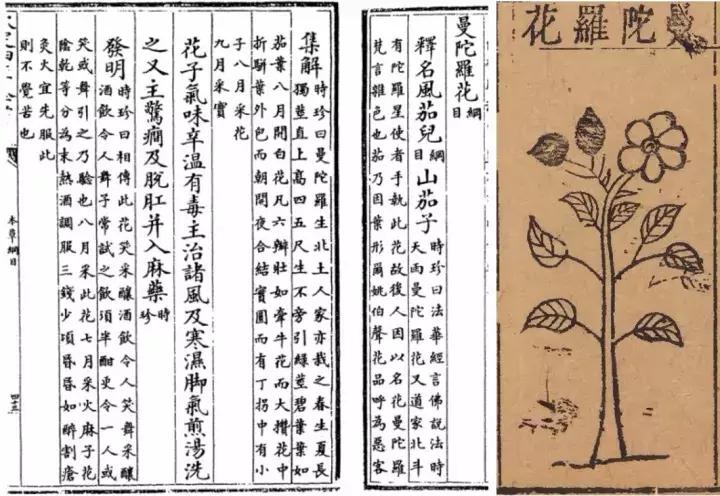 陀羅花
曼陀羅花綱目
釋名風茄兒綱目山茄子時珍曰法華經言佛說法時
天雨曼陀羅花又道家北斗
有陀羅星使者手執此花故後人因以名花曼陀羅
梵言雜色也茄乃因葉形爾姚伯聲花品呼為惡客
集解時珍曰曼陀羅生北土人家亦栽之春生夏長
獨莖直上高四五尺生不旁引綠莖碧葉葉如
茄葉八月開白花凡六瓣壯如牽牛花而大攢花中
折駢葉外包而朝開夜合結實圓而有丁拐中有小
子八月采花
九月采實
花子氣味辛溫有毒主治諸風及寒濕脚氣煎湯洗
之又主驚癎及脫肛并入麻藥時珍
發明時珍曰相傳此花笑采釀酒飲令人笑舞采釀
酒飲令人舞予常試之飲須半酣更令一人或
笑或舞引之乃驗也八月采此花七月采火麻子花
陰乾等分為末熱酒調服三錢少頃昏昏如醉割瘡
灸火宜先服此
則不覺苦也
本草綱目